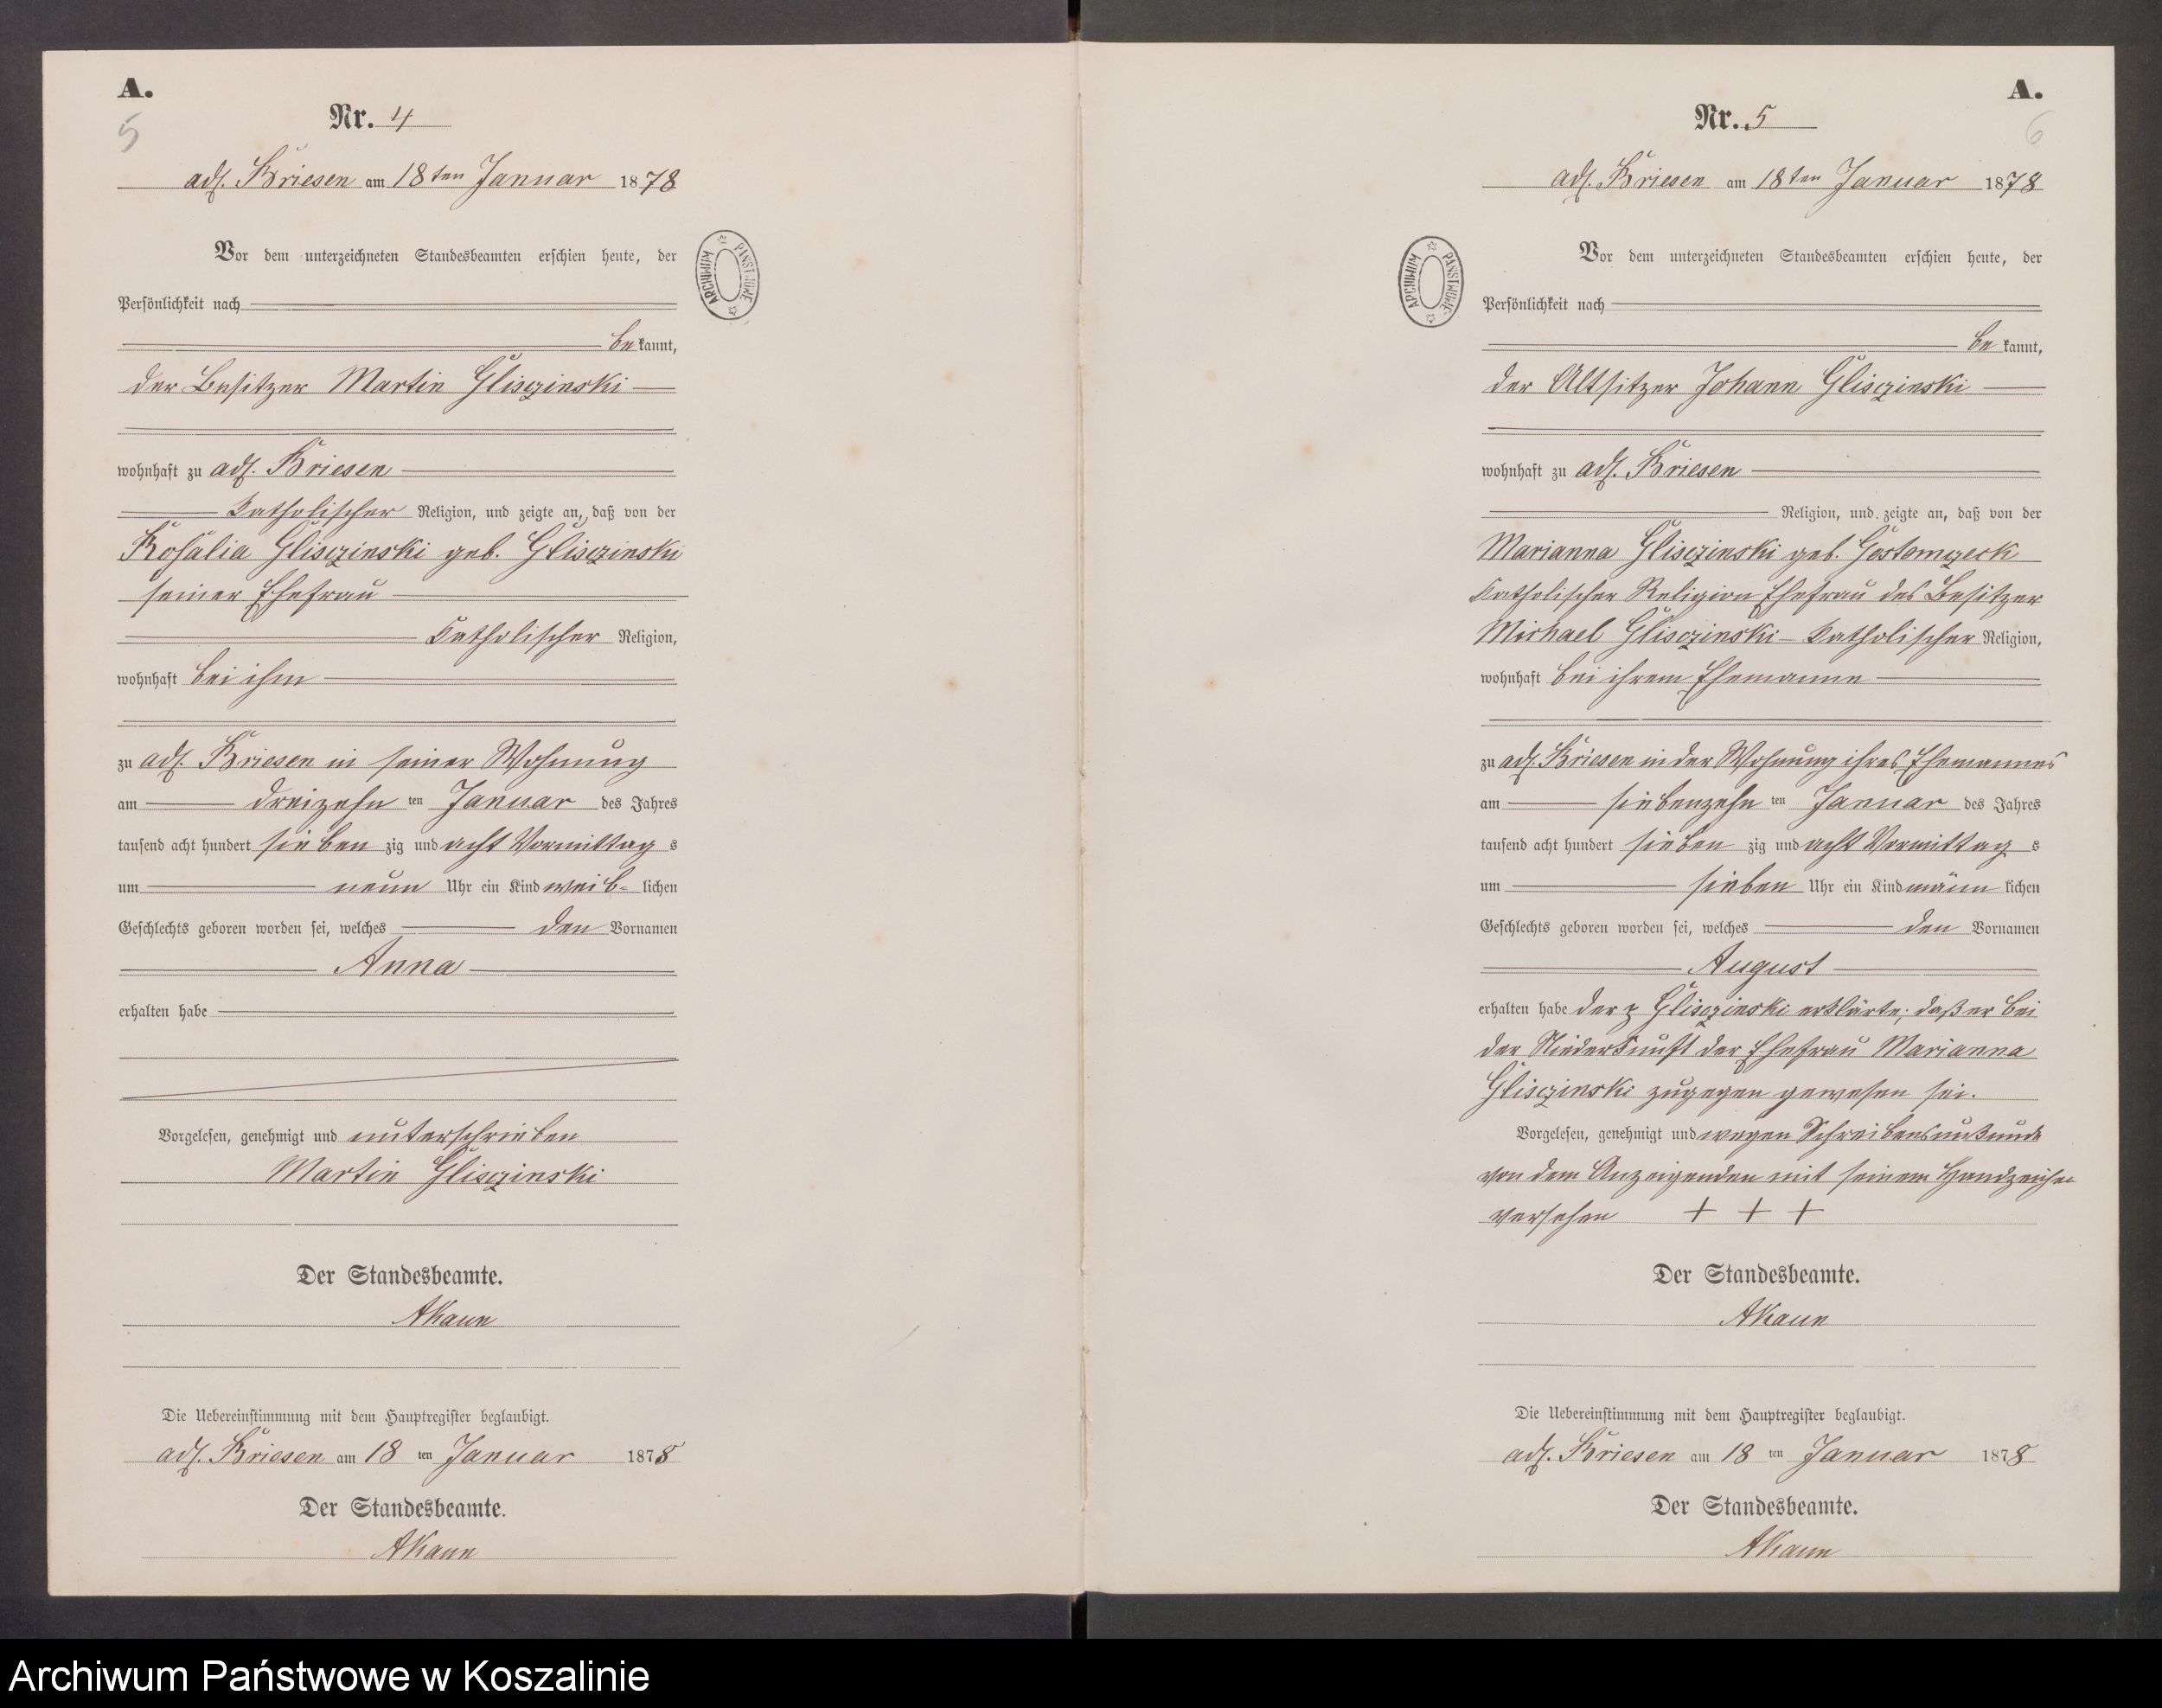 A.
5
Nr. 4
adl. Briesen am 18ten Januar 1878
Vor dem unterzeichneten Standesbeamten erschien heute, der
Persönlichkeit nach
bekannt,
der Besitzer Martin Glisczinski
wohnhaft zu adl. Briesen
Katholischer Religion, und zeigte an, daß von der
Rosalia Glisczinski geb. Glisczinski
seiner Ehefrau
Catholischer Religion,
wohnhaft bei ihm
zu adl. Briesen in seiner Wohnung
am dreizehn ten Januar des Jahres
tausend acht hundert sieben zig und acht Vormittag s
um neun Uhr ein Kind weib- lichen
Geschlechts geboren worden sei, welches den Vornamen
Anna
erhalten habe
Vorgelesen, genehmigt und unterschrieben
Martin Glisczinski
Der Standesbeamte.
Die Uebereinstimmung mit dem Hauptregister beglaubigt.
adl. Briesen am 18 ten Januar 1878
Der Standesbeamte.
ARCHIWUM PAŃSTWOWE
A.
6
Nr. 5
adl. Briesen am 18ten Januar 1878
Vor dem unterzeichneten Standesbeamten erschien heute, der
Persönlichkeit nach
be kannt,
der Altsitzer Johann Glisczinski
wohnhaft zu adl. Briesen
Religion, und zeigte an, daß von der
Marianna Glisczinski geb. Gostomczeck
Catholischer Religion Ehefrau des Besitzer
Michael Glisczinski Katholischer Religion,
wohnhaft bei ihrem Ehemanne
zu adl. Briesen in der Wohnung ihres Ehemannes
am siebenzehn ten Januar des Jahres
tausend acht hundert sieben zig und acht Vormittag s
um sieben Uhr ein Kind männ lichen
Geschlechts geboren worden sei, welches den Vornamen
August
erhalten habe der Glisczinski erklärte; daß er bei
der Niederkunft der Ehefrau Marianna
Glisczinski zugegen gewesen sei.
Vorgelesen, genehmigt und wegen Schreibensunkunde
von dem Anzeigenden mit seinem Handzeichen
versehen + + +
Der Standesbeamte.
Die Uebereinstimmung mit dem Hauptregister beglaubigt.
adl. Briesen am 18 ten Januar 1878
Der Standesbeamte.
ARCHIWUM PAŃSTWOWE
Archiwum Państwowe w Koszalinie